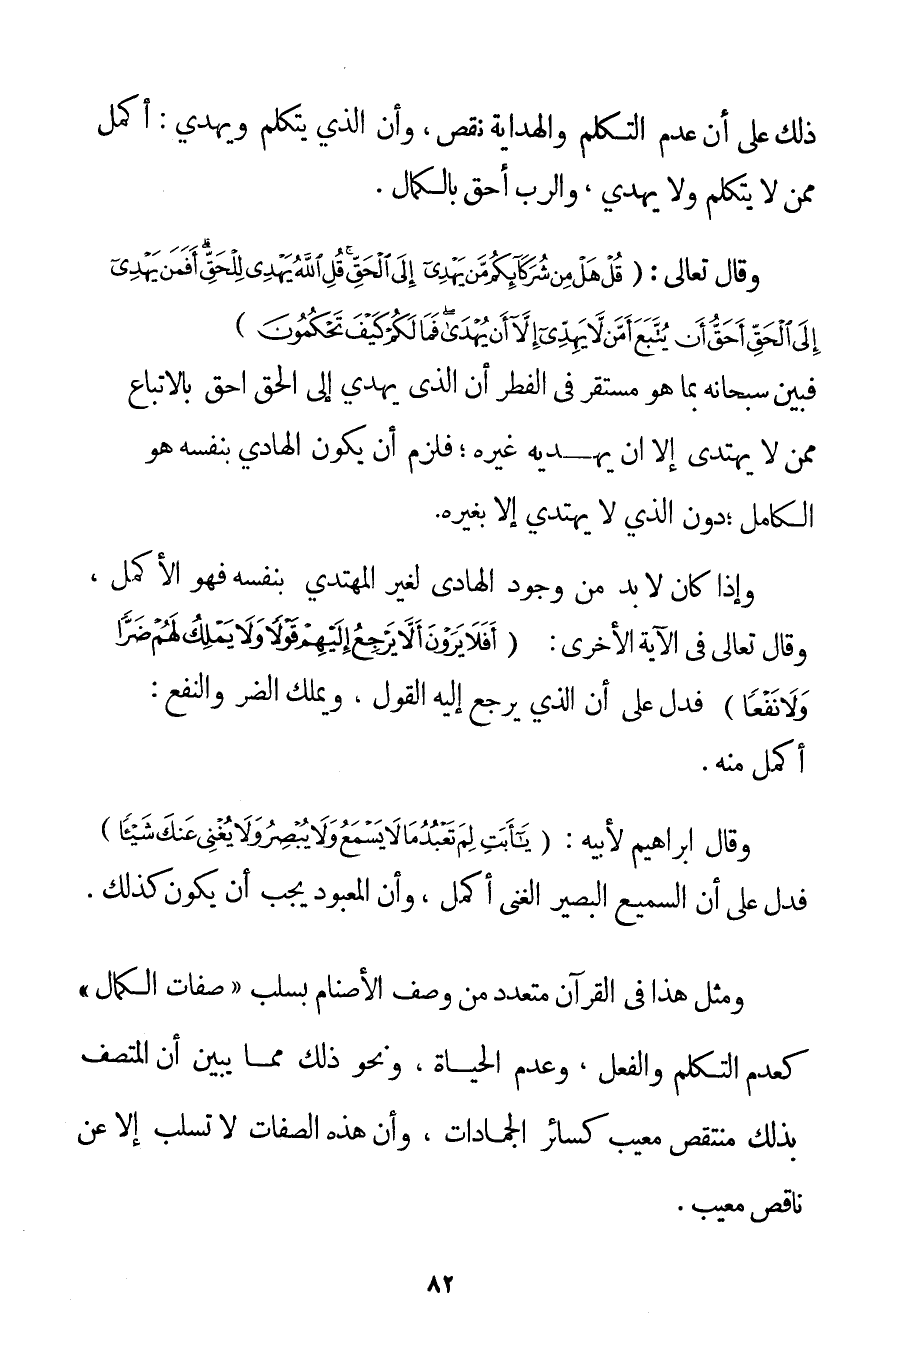 ذلك على أن عدم التكلم والهداية نقص ، وأن الذي يتكلم ويهدي : أكمل
ممن لا يتكلم ولا يهدي ، والرب أحق بالكمال .
وقال تعالى : ( قُلْ هَلْ مِن شُرَكَآئِكُم مَّن يَهْدِىٓ إِلَى ٱلْحَقِّ ۚ قُلِ ٱللَّهُ يَهْدِى لِلْحَقِّ ۗ أَفَمَن يَهْدِىٓ
إِلَى ٱلْحَقِّ أَحَقُّ أَن يُتَّبَعَ أَمَّن لَّا يَهِدِّىٓ إِلَّآ أَن يُهْدَىٰ ۖ فَمَا لَكُمْ كَيْفَ تَحْكُمُونَ )
فبين سبحانه بما هو مستقر فى الفطر أن الذى يهدي إلى الحق احق بالاتباع
ممن لا يهتدى إلا ان يهـــديه غيره ؛ فلزم أن يكون الهادي بنفسه هو
الكامل ؛ دون الذي لا يهتدي إلا بغيره.
وإذا كان لا بد من وجود الهادى لغير المهتدي بنفسه فهو الأكمل ،
وقال تعالى فى الآية الأخرى : ( أَفَلَا يَرَوْنَ أَلَّا يَرْجِعُ إِلَيْهِمْ قَوْلًا وَلَا يَمْلِكُ لَهُمْ ضَرًّا
وَلَا نَفْعًا ) فدل على أن الذي يرجع إليه القول ، ويملك الضر والنفع :
أكمل منه .
وقال ابراهيم لأبيه : ( يَٰٓأَبَتِ لِمَ تَعْبُدُ مَا لَا يَسْمَعُ وَلَا يُبْصِرُ وَلَا يُغْنِى عَنكَ شَيْـًٔا )
فدل على أن السميع البصير الغنى أكمل ، وأن المعبود يجب أن يكون كذلك .
ومثل هذا فى القرآن متعدد من وصف الأصنام بسلب « صفات الكمال »
كعدم التكلم والفعل ، وعدم الحيــاة ، ونحو ذلك ممــا يبين أن المتصف
بذلك منتقص معيب كسائر الجمادات ، وأن هذه الصفات لا تسلب إلا عن
ناقص معيب .
٨٢